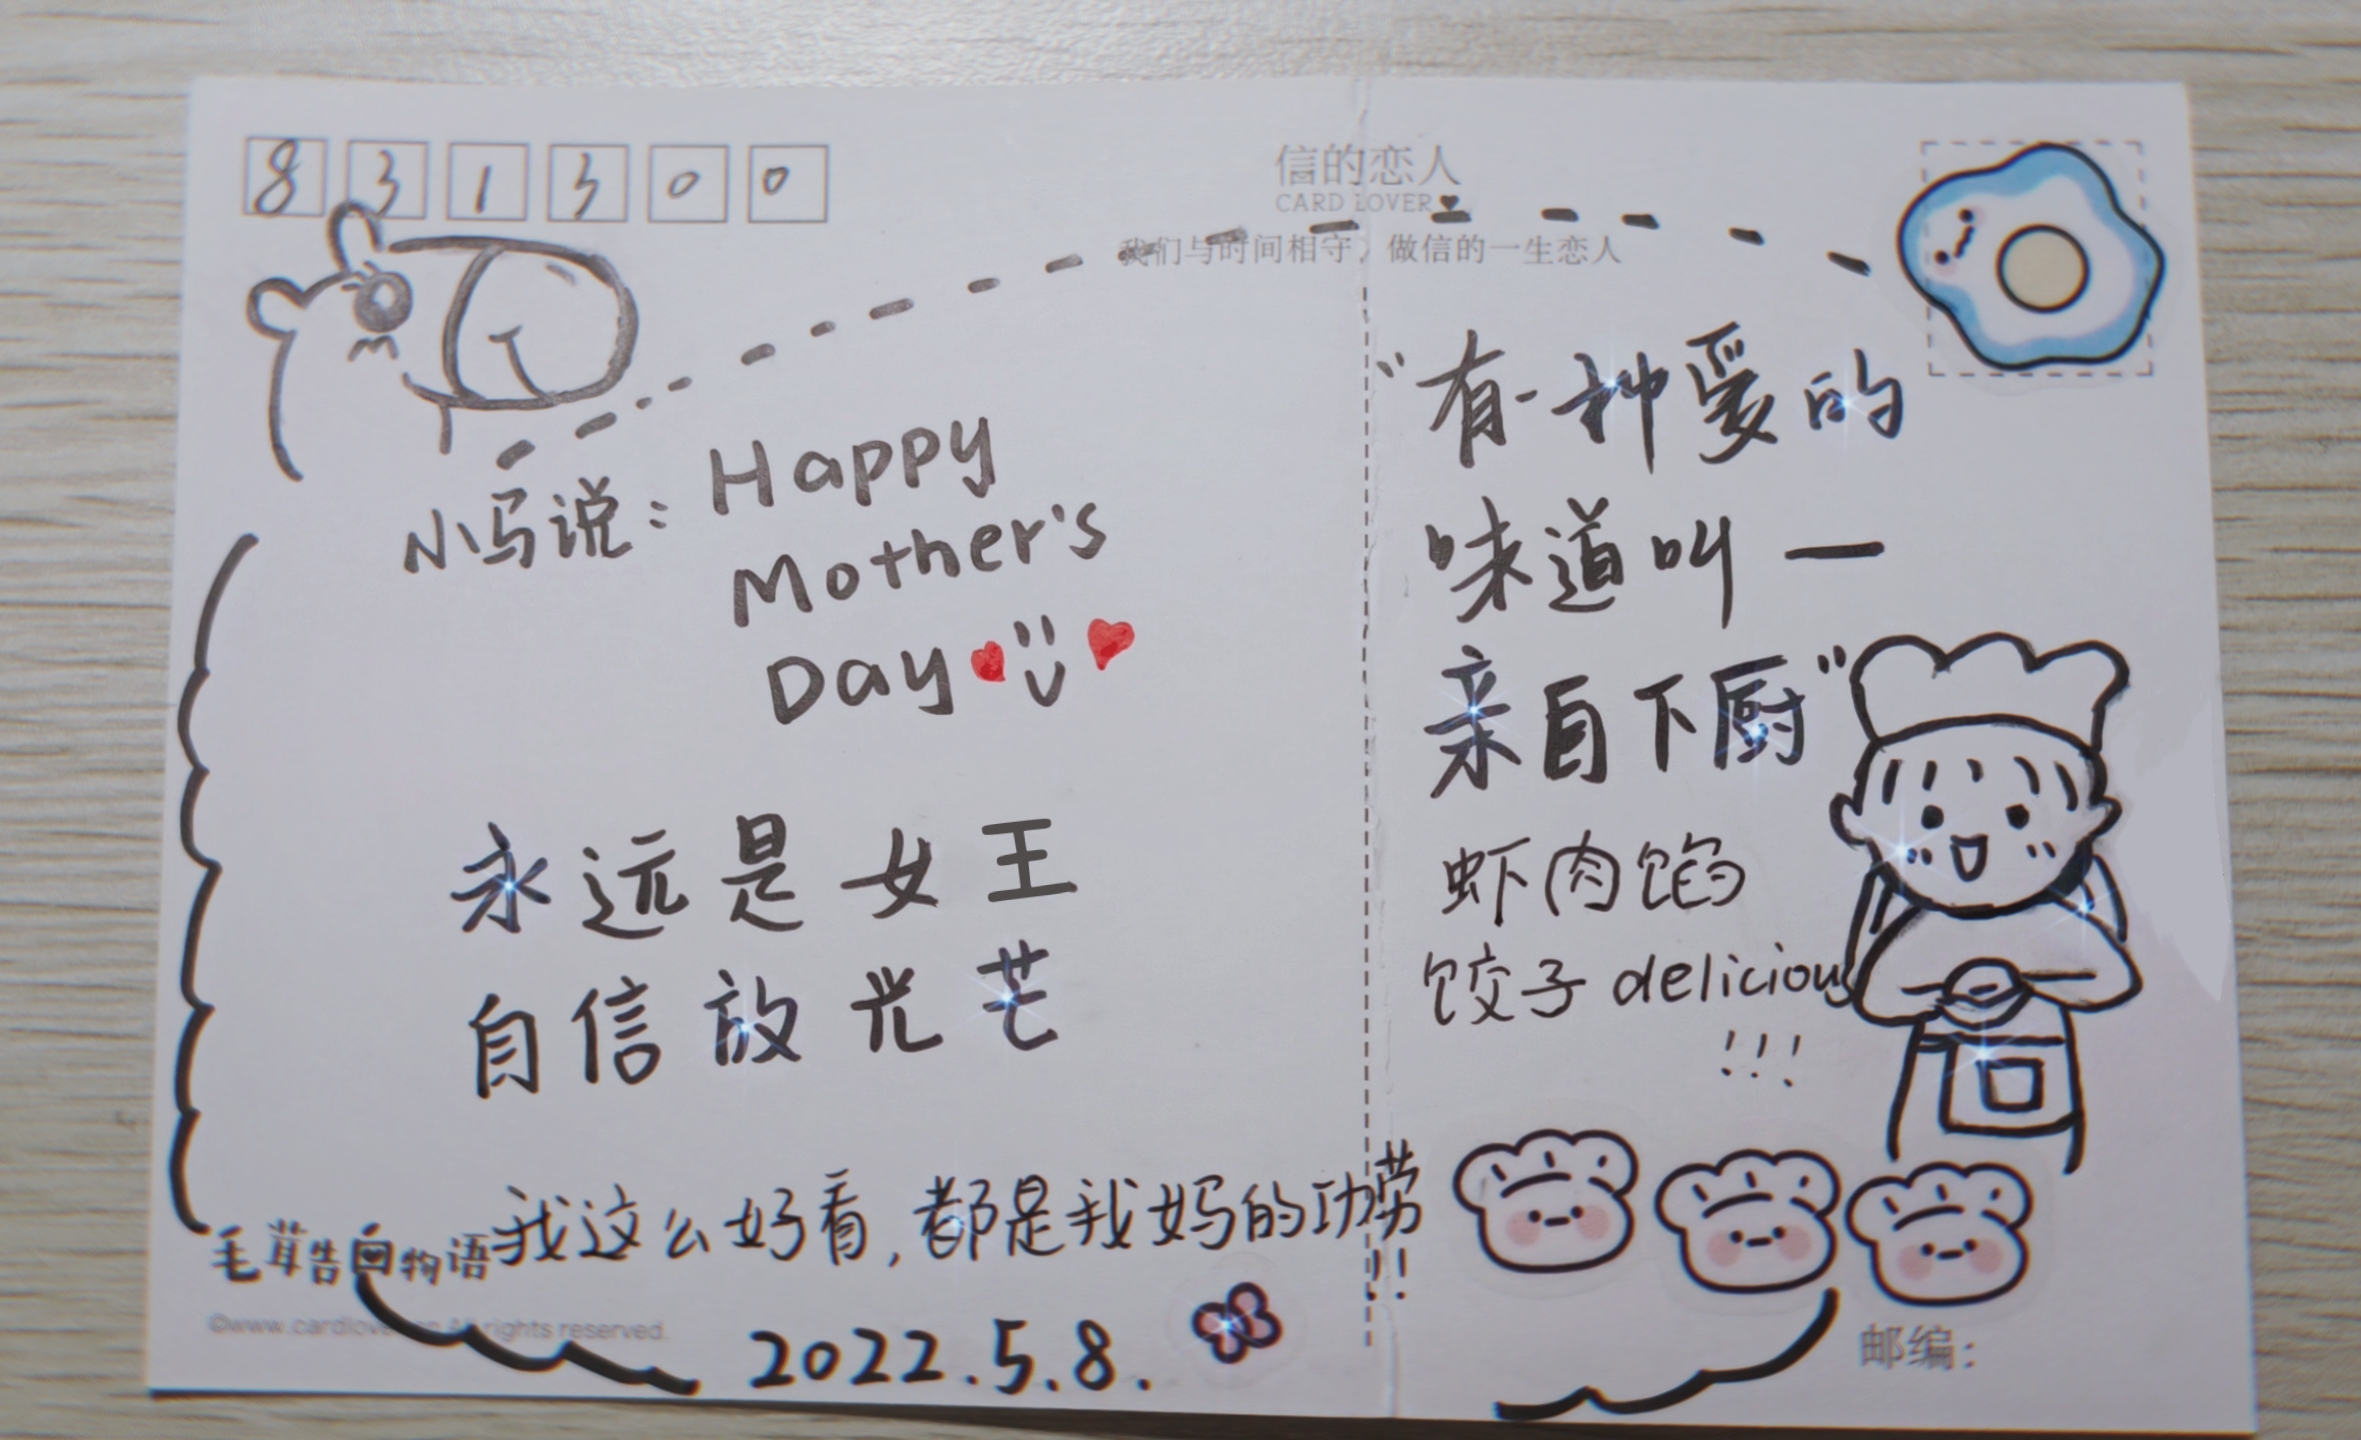 831300
信的恋人
CARD LOVER
我们与时间相守，做信的一生恋人
小马说：Happy
Mother's
Day
永远是女王
自信放光芒
我这么好看，都是我妈的功劳!!
毛茸告白物语
©www.cardlover.cn All rights reserved.
2022.5.8.
"有一种爱的
味道叫—
亲自下厨"
虾肉馅
饺子 delicious
!!!
邮编：